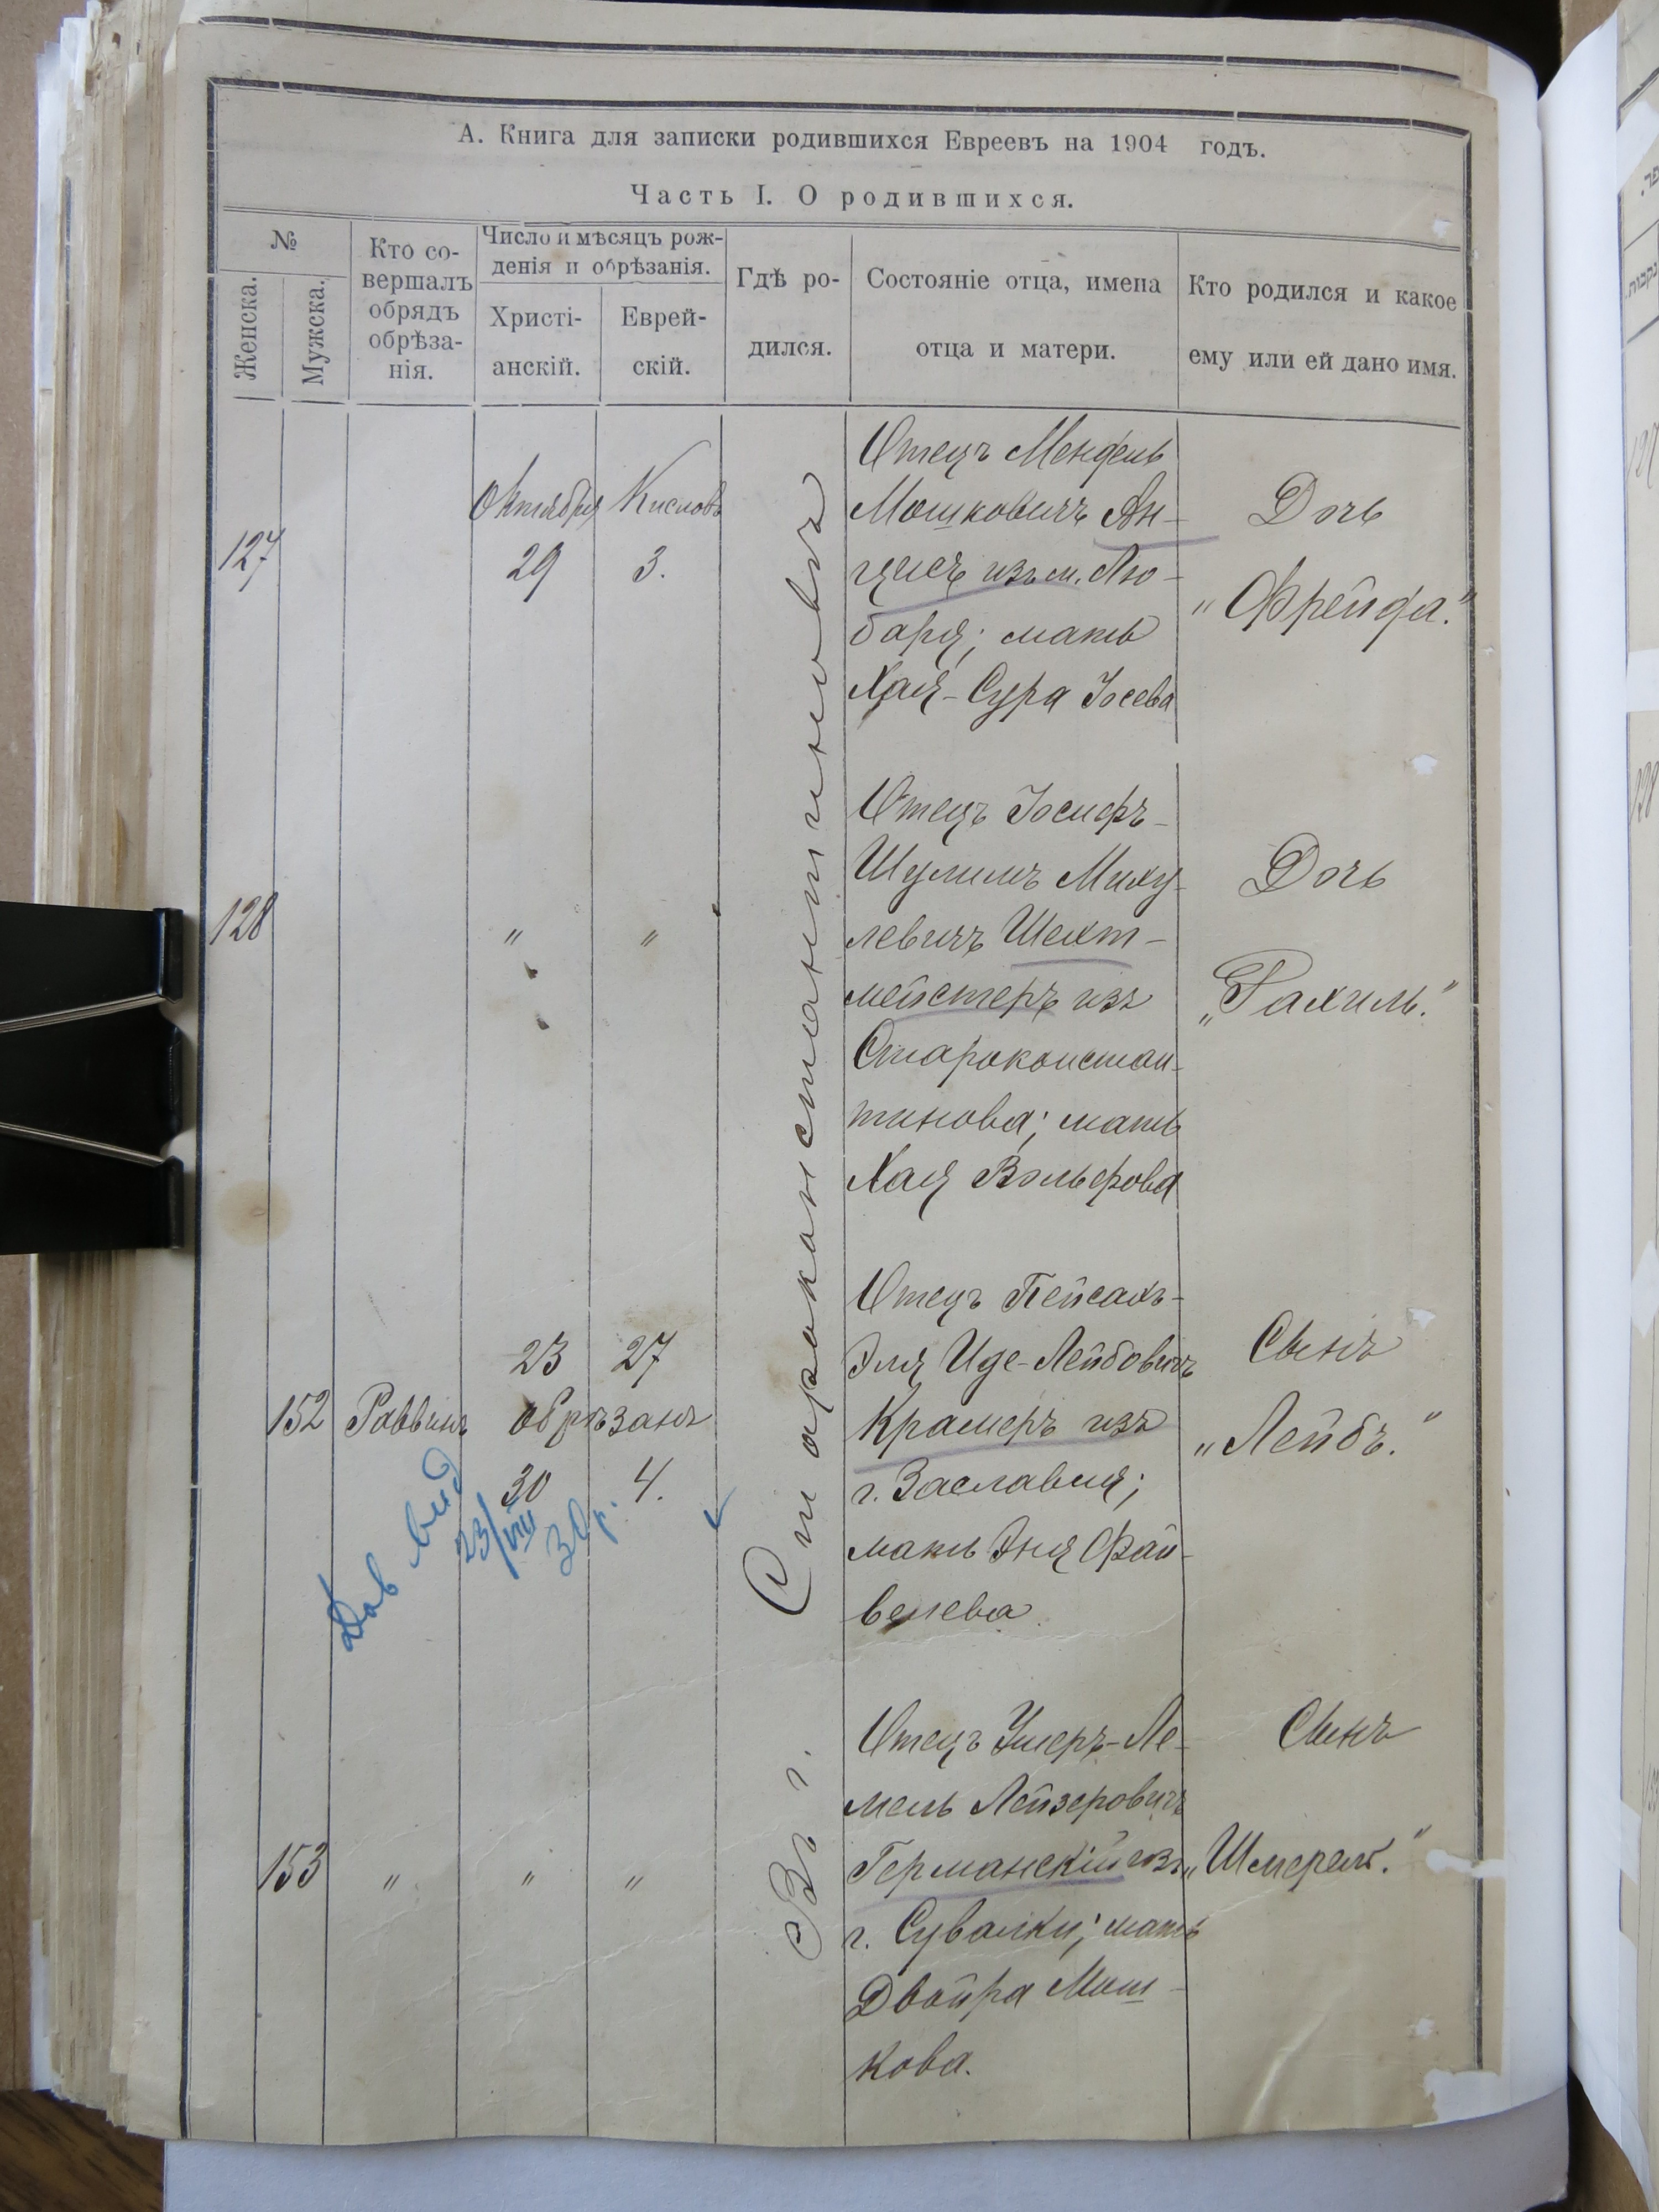 А. Книга для записки родившихся Евреевъ на 1904 годъ.
Часть I. О родившихся.
№
Женска.
Мужска.
Кто со-
вершалъ
обрядъ
обрѣза-
нія.
Число и мѣсяцъ рож-
денія и обрѣзанія.
Христі-
анскій.
Еврей-
скій.
Гдѣ ро-
дился.
Состояніе отца, имена
отца и матери.
Кто родился и какое
ему или ей дано имя.
Въ г. Староконстантиновѣ
127
Октября Кислов
29 3.
Отецъ Мендель
Мошковичъ Ан-
цисъ изъ м. Лю-
баря; мать
Хая-Сура Іосева
Дочь
„Фрейда.“
128
" "
Отецъ Іосифъ-
Шулимъ Миху-
левичъ Шехт-
мейстеръ изъ
Староконстан-
тинова; мать
Хая Вольфова
Дочь
„Рахиль.“
152 Раввинъ
23 27
обрѣзанъ
30 4.
23/VIII
Отецъ Пейсахъ-
Эля Иде-Лейбовичъ
Крамеръ изъ
г. Заславля;
мать Эня Фай-
велева
Сынъ
„Лейбъ.“
153 " " "
Отецъ Ушеръ-Ле-
мель Лейзеровичъ
Германскій изъ
г. Сувалки; мать
Двойра Мош-
кова.
Сынъ
„Шмерель.“